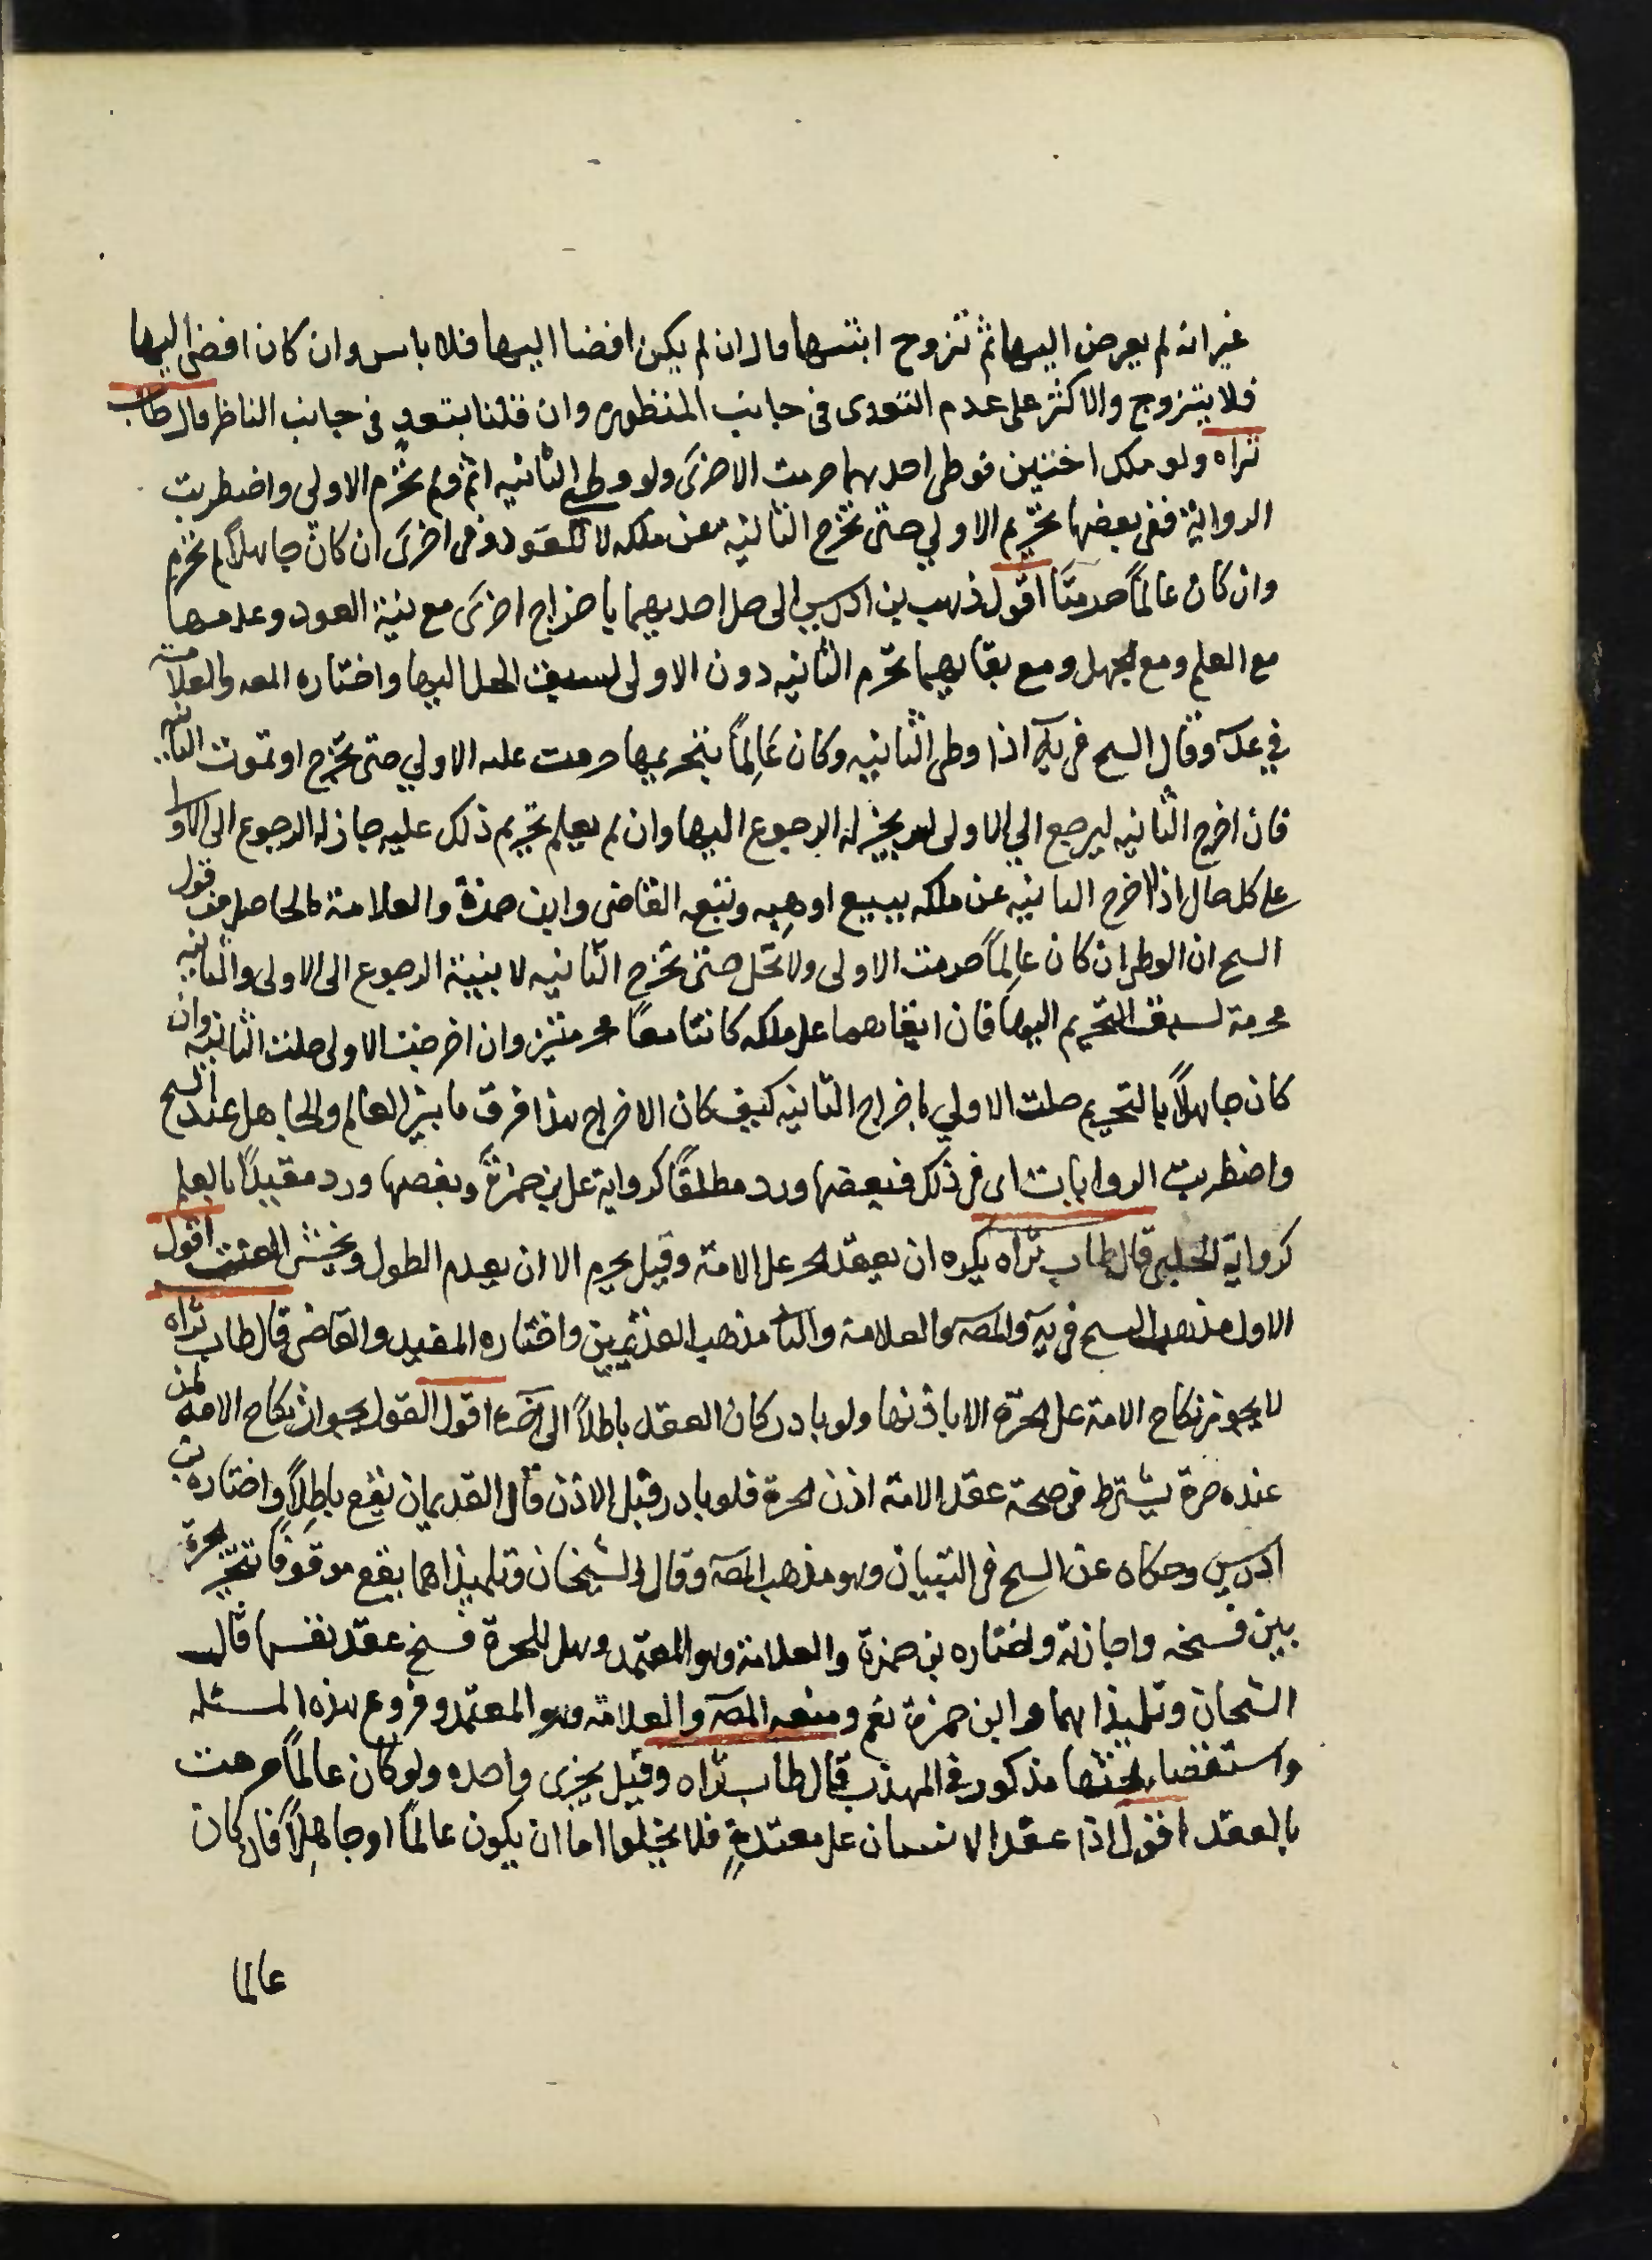 غير انه لم يعرض اليها ثم تزوج ابنتها قال ان لم يكن افضا اليها فلا باس وان كان افضى اليها
فلا يتزوج والاكثر على عدم التعدى فى جانب المنظوره وان قلنا بتعدٍ فى جانب الناظر قال طاب
ثراه ولو ملك اختين فوطى احديهما حرمت الاخرى ولو وطى الثانيه اثم ولم تحرم الاولى واضطربت
الرواية ففى بعضها تحريم الاولي حتى تخرج الثانية عن ملكه لا للعود وفى اخرى ان كان جاهلاً لم تحرم
وان كان عالماً حرمتا اقول ذهب بن ادريس الى حل احديهما باخراج اخرى مع نية العود وعدمها
مع العلم ومع الجهل ومع بقايهما تحرم الثانيه دون الاولى لسبق الحل اليها واختاره المص والعلامة
في عد وقال الشيخ فى يه اذا وطى الثانيه وكان عالِماً بتحريمها حرمت عليه الاولي حتى تخرج او تموت الثانيه
فان اخرج الثانيه ليرجع الي الاولى لم يجز له الرجوع اليها وان لم يعلم تحريم ذلك عليه جاز له الرجوع الى الاولى
على كل حال اذا اخرج الثانيه عن ملكه ببيع او هبه وتبعه القاضى وابن حمزة والعلامة فالحاصل من قول
الشيخ ان الوطى ان كان عالِماً حرمت الاولى ولا تحل حتى تخرج الثانيه لا بنية الرجوع الى الاولى والثانيه
محرمة لسبق التحريم اليها فان ابقاهما على ملكه كانتا معاً محرمتين وان اخرجت الاولى حلت الثانيه وان
كان جاهلاً بالتحريم حلت الاولي باخراج الثانيه كيف كان الاخراج هذا فرق ما بين العالم والجاهل عند الشيخ
واضطربت الروايات اى فى ذلك فبعضها ورد مطلقاً كرواية على بن حمزة وبعضها ورد مقيداً بالعلم
كرواية الحلبى قال طاب ثراه يكره ان يعقد الحر على الامة وقيل يحرم الا ان يعدم الطول ويخشى العنت اقول
الاول مذهب الشيخ فى يه والمصه والعلامة والثا مذهب القديمين واختاره المفيد والقاضى قال طاب ثراه
لا يجوز نكاح الامة على الحرة الا باذنها ولو بادر كان العقد باطلاً الى آخره اقول القول بجواز نكاح الامه لمن
عنده حرة يشترط فى صحة عقد الامة اذن الحرة فلو بادر قبل الاذن قال القديمان يقع باطِلاً واختاره بن
ادريس وحكاه عن الشيخ فى التبيان وهو مذهب المصه وقال الشيخان وتلميذاهما يقع موقوفاً تتخير الحرة
بين فسخه واجازته واختاره بن حمزة والعلامة وهو المعتمد وهل للحرة فسخ عقد نفسها قال
الشيخان وتلميذاهما وابن حمزة نعم ومنعه المصه والعلامة وهو المعتمد وفروع هذه المسئله
واستقصاء بحثها مذكور فى المهذب قال طاب ثراه وقيل يجزى واحده ولو كان عالماً حرمت
بالعقد اقول اذا عقد الانسان على معتدةٍ فلا يخلوا اما ان يكون عالماً او جاهِلاً فان كان
عالما